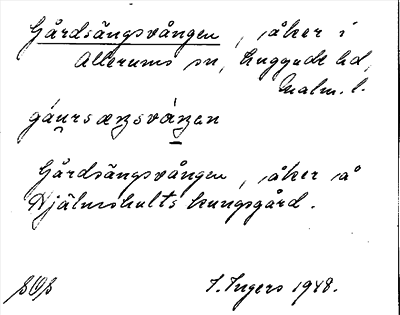 Gårdsängsvången, åker i
Allerums sn, Luggude hd,
Malm. l.
gáu̯rsæŋsváŋen
Gårdsängsvången, åker å
Hjälmshults kungsgård.
I. Ingers 1948.